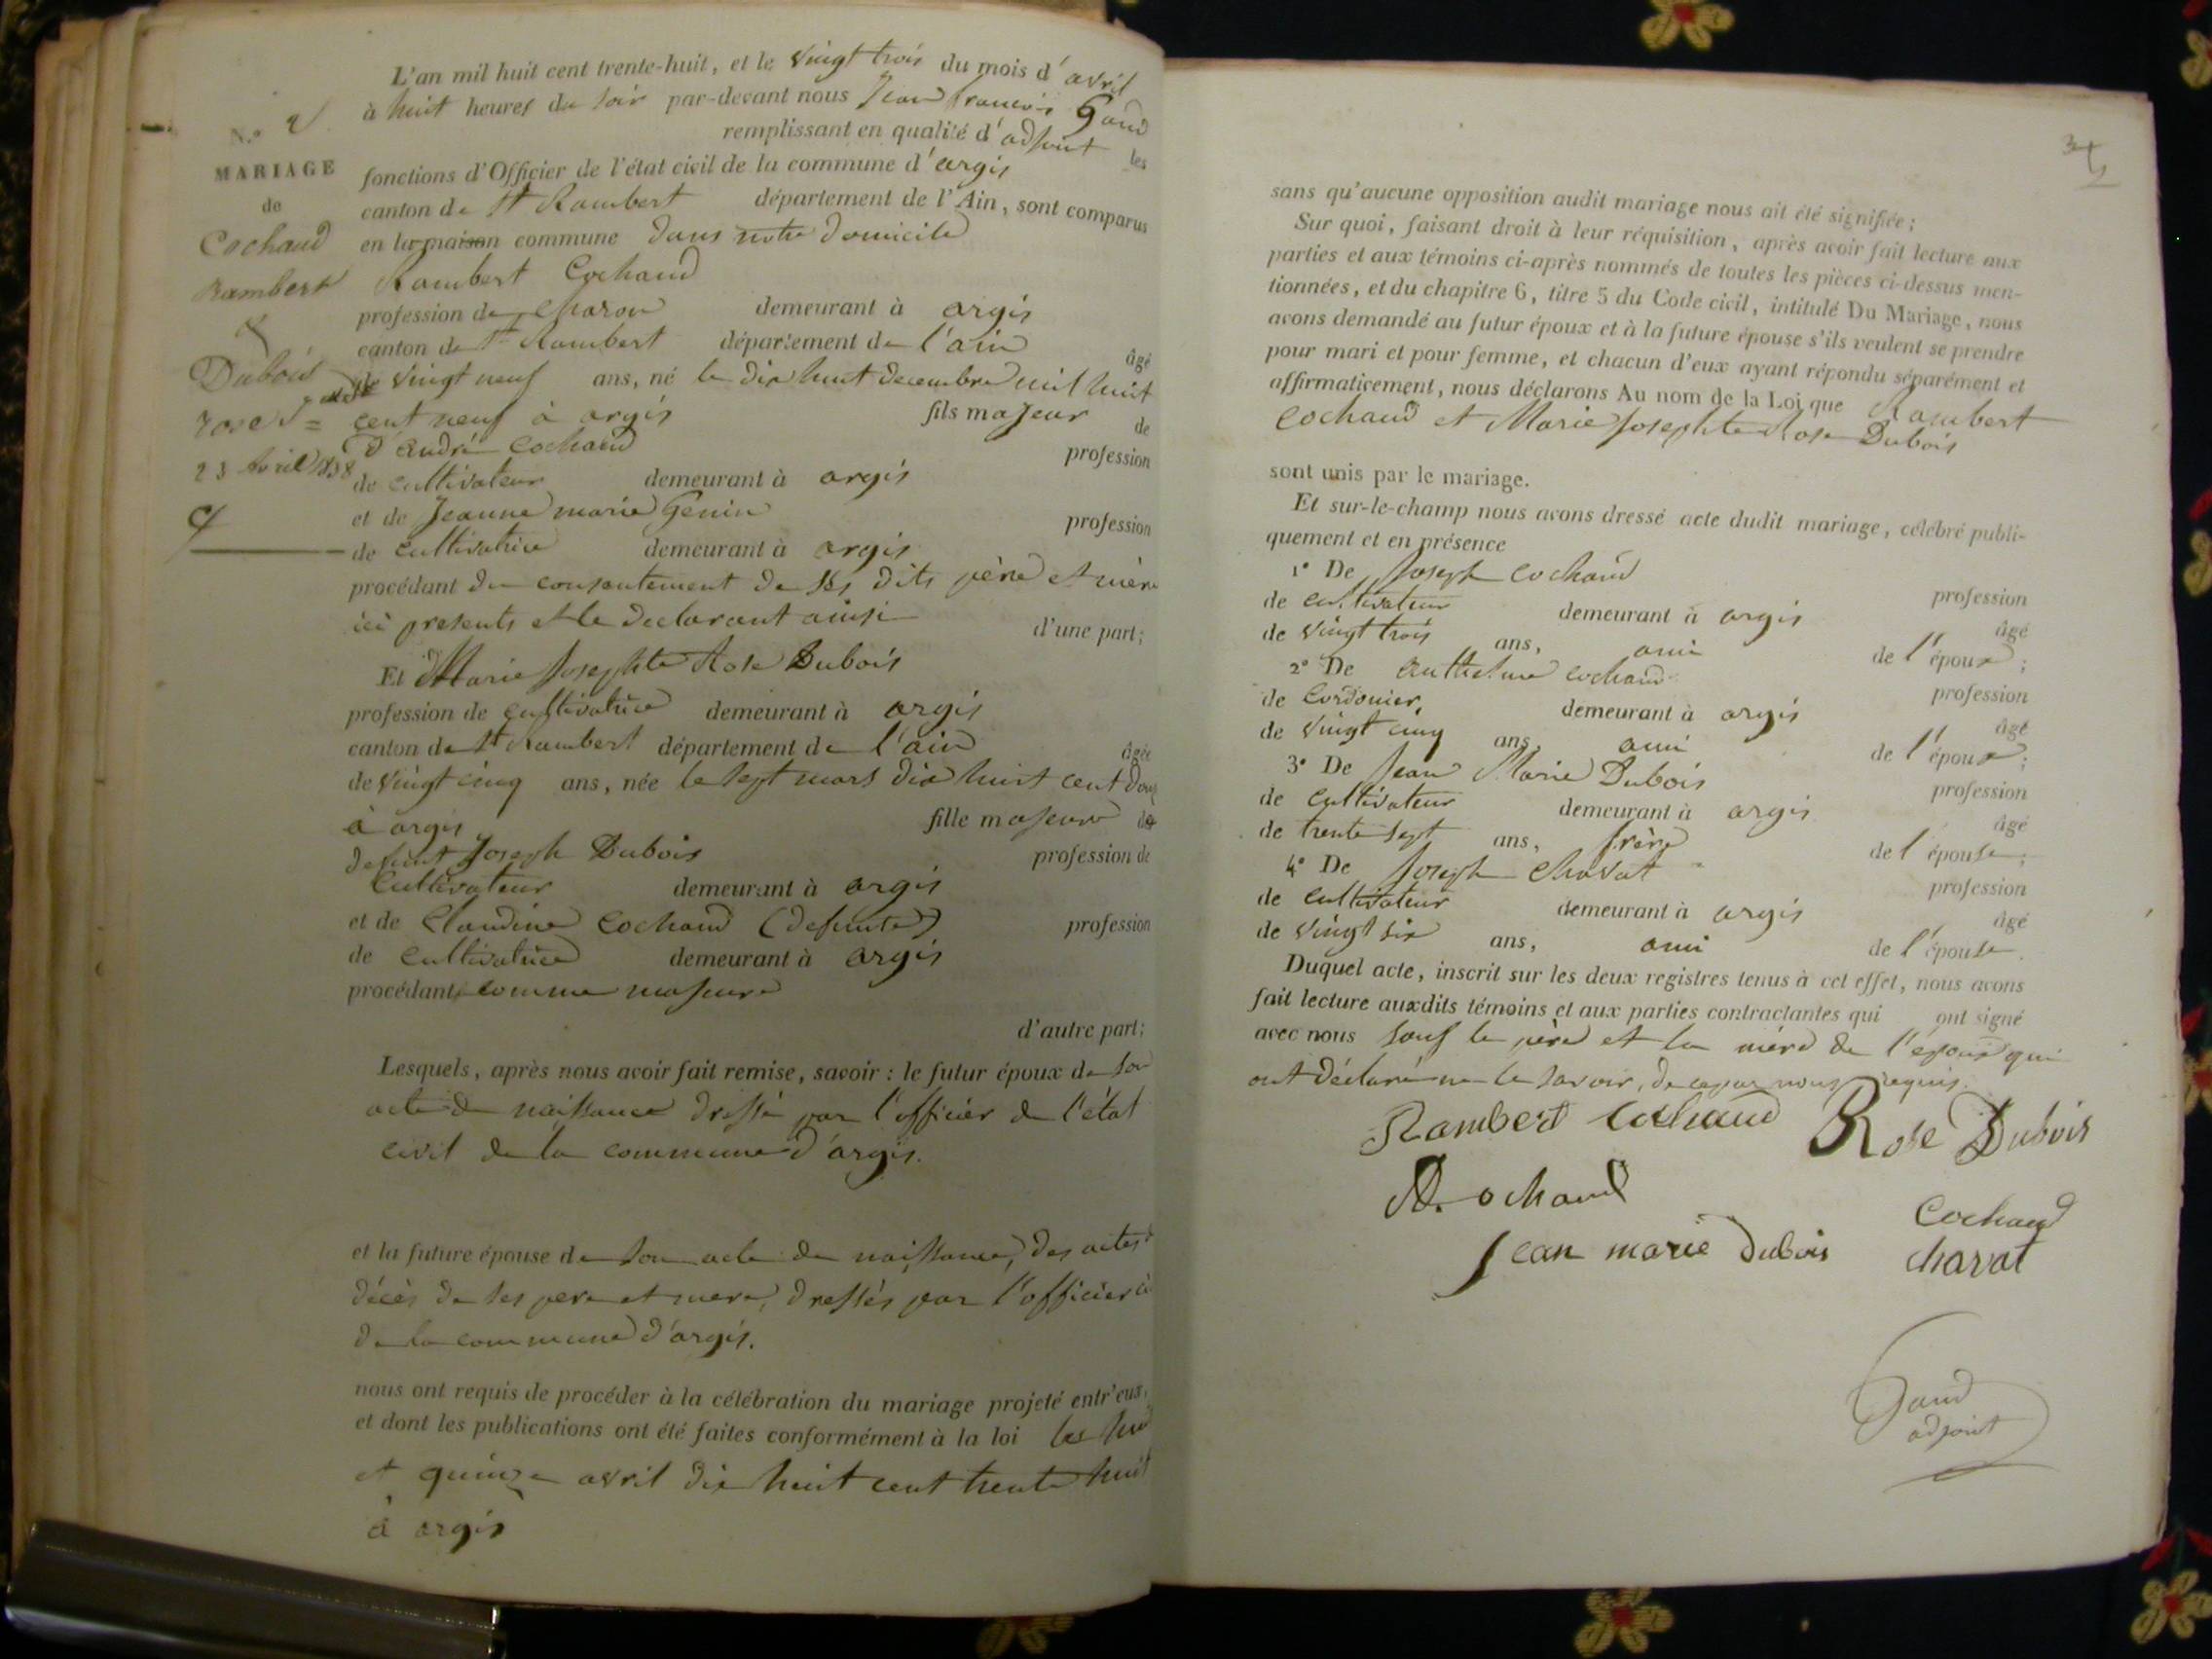 L'an mil huit cent trente-huit, et le vingt trois du mois d'avril
à huit heures du soir par-devant nous Jean françois Gaud
remplissant en qualité d'adjoint les
fonctions d'Officier de l'état civil de la commune d'argis
canton de St Rambert département de l'Ain, sont comparus
en la maison commune dans notre domicile
Rambert Cochaud
profession de charon demeurant à argis
canton de St Rambert département de l'ain âgé
de vingt neuf ans, né le dix huit decembre mil huit
cent neuf à argis fils majeur de
d'andré Cochaud profession
de cultivateur demeurant à argis
et de Jeanne marie Genin profession
de cultivatrice demeurant à argis
procédant du consentement de ses dits père et mère
ici presents et le declarant ainsi d'une part;
Et Marie Josephte Rose Dubois
profession de cultivatrice demeurant à argis
canton de St Rambert département de l'ain âgée
de vingt cinq ans, née le sept mars dix huit cent douz
à argis fille majeure de
defunt Joseph Dubois profession de
Cultivateur demeurant à argis
et de Claudine Cochaud (defunte) profession
de cultivatrice demeurant à argis
procédant comme majeure
d'autre part;
Lesquels, après nous avoir fait remise, savoir : le futur époux de son
acte de naissance dressé par l'officier de l'état
civil de la commune d'argis.
et la future épouse de son acte de naissance, des actes
décès de ses pere et mere, dressés par l'officier
de la commune d'argis.
nous ont requis de procéder à la célébration du mariage projeté entr'eux,
et dont les publications ont été faites conformément à la loi les
et quinze avril dix huit cent trente huit
à argis
N.° 2
MARIAGE
de
Cochaud
Rambert
&
Dubois
rose J
23 Avril 1838
sans qu'aucune opposition audit mariage nous ait été signifiée;
Sur quoi, faisant droit à leur réquisition, après avoir fait lecture aux
parties et aux témoins ci-après nommés de toutes les pièces ci-dessus men-
tionnées, et du chapitre 6, titre 5 du Code civil, intitulé Du Mariage, nous
avons demandé au futur époux et à la future épouse s'ils veulent se prendre
pour mari et pour femme, et chacun d'eux ayant répondu séparément et
affirmativement, nous déclarons Au nom de la Loi que Rambert
Cochaud et Marie Josephte Rose Dubois
sont unis par le mariage.
Et sur-le-champ nous avons dressé acte dudit mariage, célébré publi-
quement et en présence
1° De Joseph Cochaud profession
de cultivateur demeurant à argis âgé
de vingt trois ans, ami de l'époux;
2° De anthelme Cochaud profession
de Cordonier, demeurant à argis âgé
de vingt cinq ans, ami de l'époux;
3° De Jean Marie Dubois profession
de cultivateur demeurant à argis âgé
de trente sept ans, frère de l'épouse;
4° De Joseph Chavat profession
de cultivateur demeurant à argis âgé
de vingt six ans, ami de l'épouse.
Duquel acte, inscrit sur les deux registres tenus à cet effet, nous avons
fait lecture auxdits témoins et aux parties contractantes qui ont signé
avec nous sauf le père et la mère de l'epoux qui
ont déclaré ne le savoir, de ce par nous requis.
Rambert Cochaud Rose Dubois
A. Cochaud Cochaud
Jean marie Dubois Chavat
Gaud
adjoint